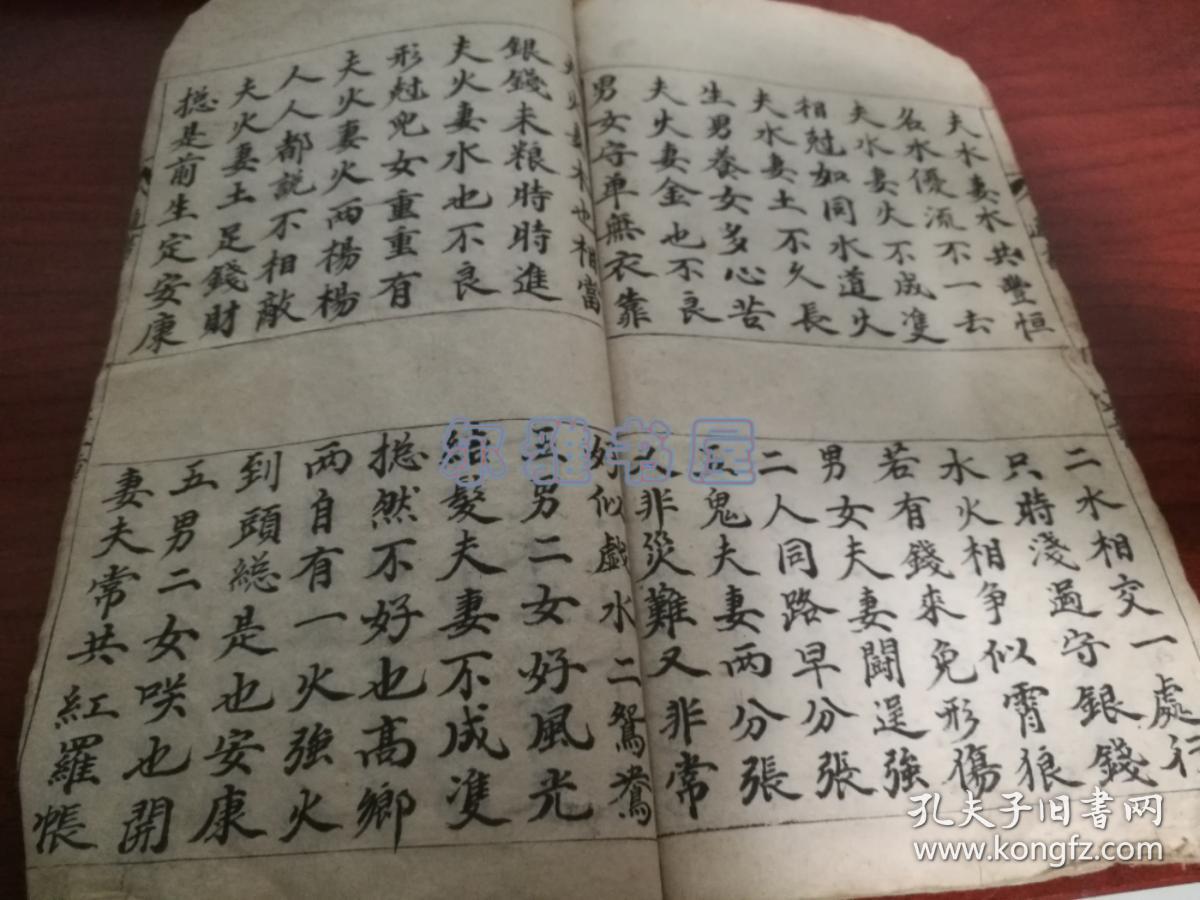 夫水妻水共豐恒
名水優流不一去
夫水妻火不成隻
相尅如同水道火
夫水妻土不久長
生男養女多心苦
夫火妻金也不良
男女守單無衣靠
二水相交一處行
只時淺過守銀錢
水火相爭似霄狼
若有錢來免形傷
男女夫妻鬪逞強
二人同路早分張
五鬼夫妻兩分張
非災難又非常
夫火妻木也相當
銀錢未粮時時進
夫火妻水也不良
形尅兒女重重有
夫火妻火兩楊楊
人人都説不相敵
夫火妻土足錢財
捴是前生定安康
好似戲水二鴛鴦
五男二女好風光
結髮夫妻不成隻
捴然不好也高鄉
兩自有一火強火
到頭緫是也安康
五男二女咲也開
妻夫常共紅羅帳
尔雅书屋
孔夫子旧书网
www.kongfz.com